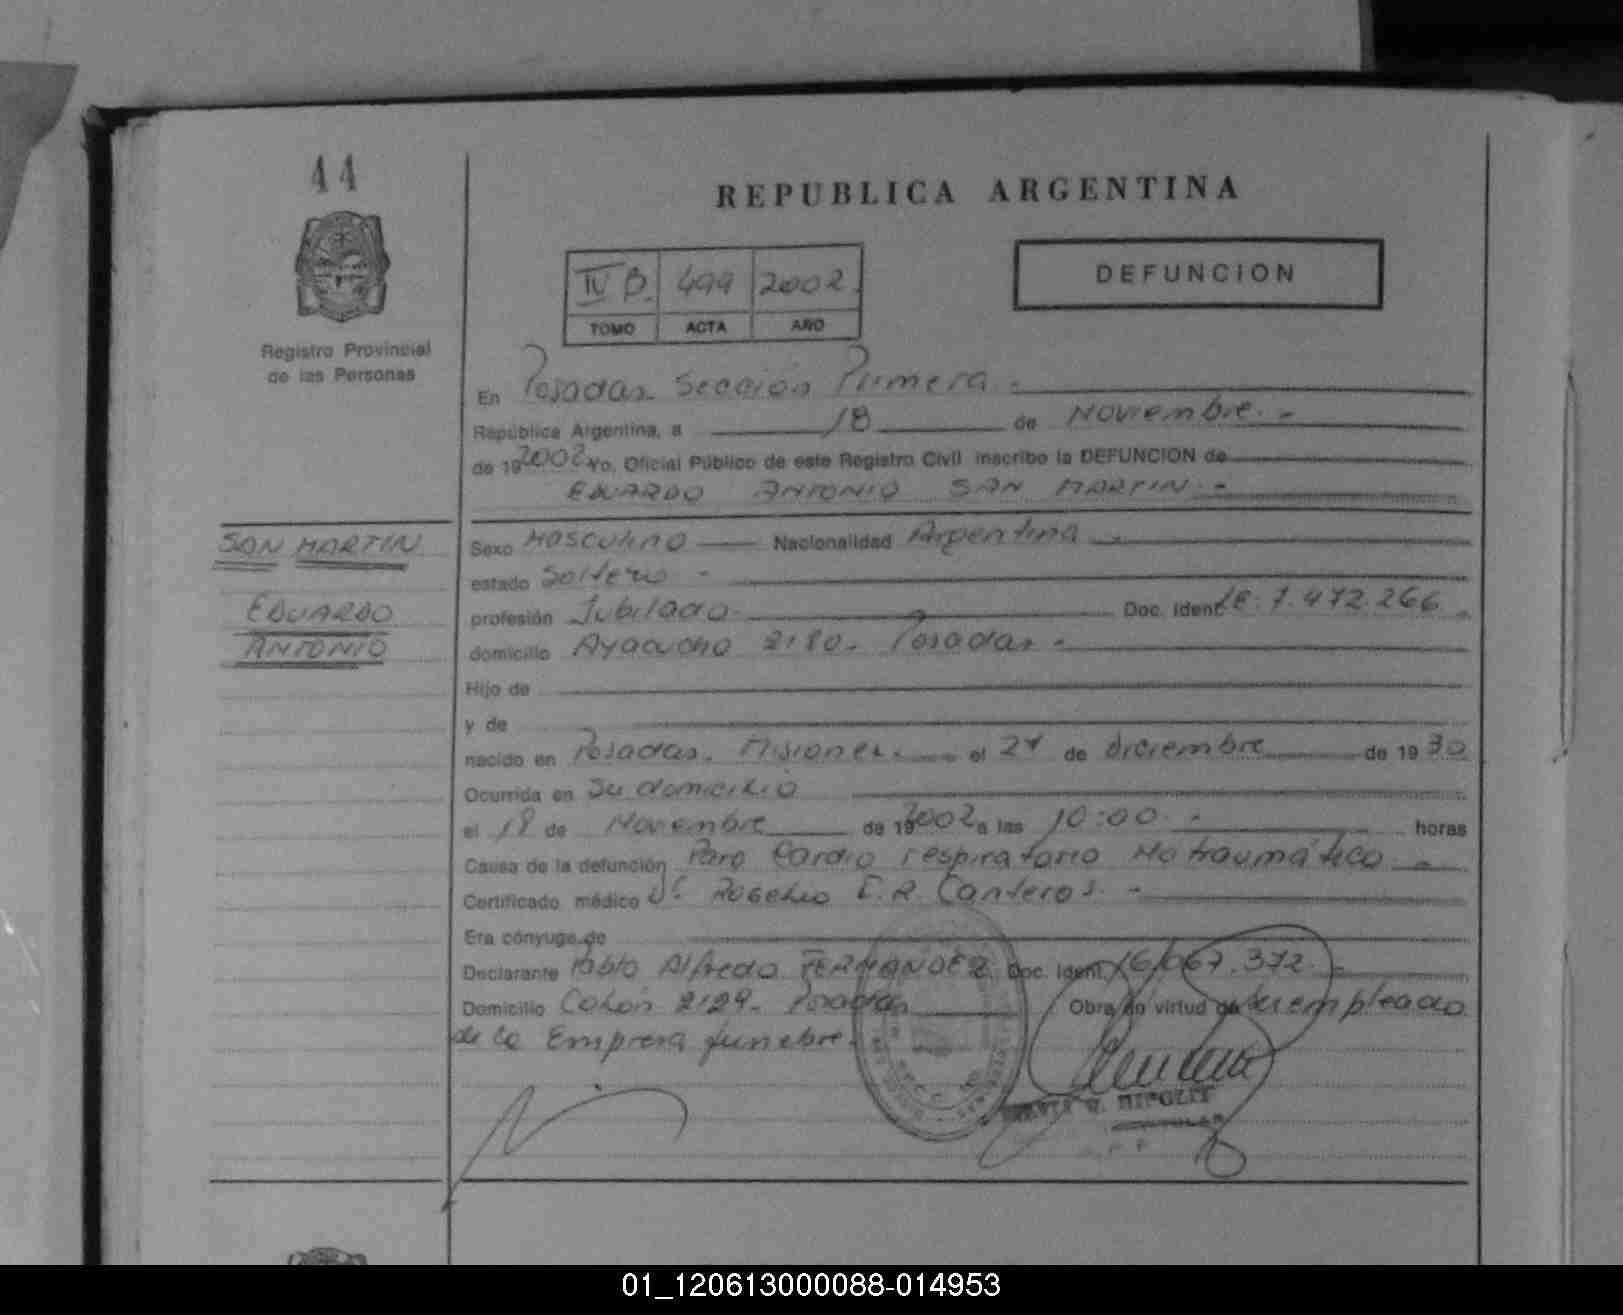 44
REPUBLICA ARGENTINA
IV B. 499 2002.
TOMO ACTA AÑO
DEFUNCION
Registro Provincial
de las Personas
En Posadas. Sección Primera.-
República Argentina, a 18 de Noviembre.-
de 19 2002 Yo, Oficial Público de este Registro Civil inscribo la DEFUNCION de
EDUARDO ANTONIO SAN MARTIN.-
SAN MARTIN
EDUARDO
ANTONIO
Sexo Masculino Nacionalidad Argentina.-
estado Soltero -
profesión Jubilado. Doc. Ident. LE. 7.472.266.
domicilio Ayacucho 2180. Posadas.-
Hijo de
y de
nacido en Posadas. Misiones. el de diciembre de 1930
Ocurrida en Su domicilio
el 18 de Noviembre de 19 2002 a las 10:00.- horas
Causa de la defunción Paro Cardio respiratorio No traumático.-
Certificado médico Dr. Rogelio E.R. Canteros.-
Era cónyuge de
Declarante Pablo Alfredo FERNANDEZ. Doc. Ident. 16.067.372.-
Domicilio Colón 2129. Posadas Obra en virtud de Ser empleado
de la Empresa funebre.
01_120613000088-014953